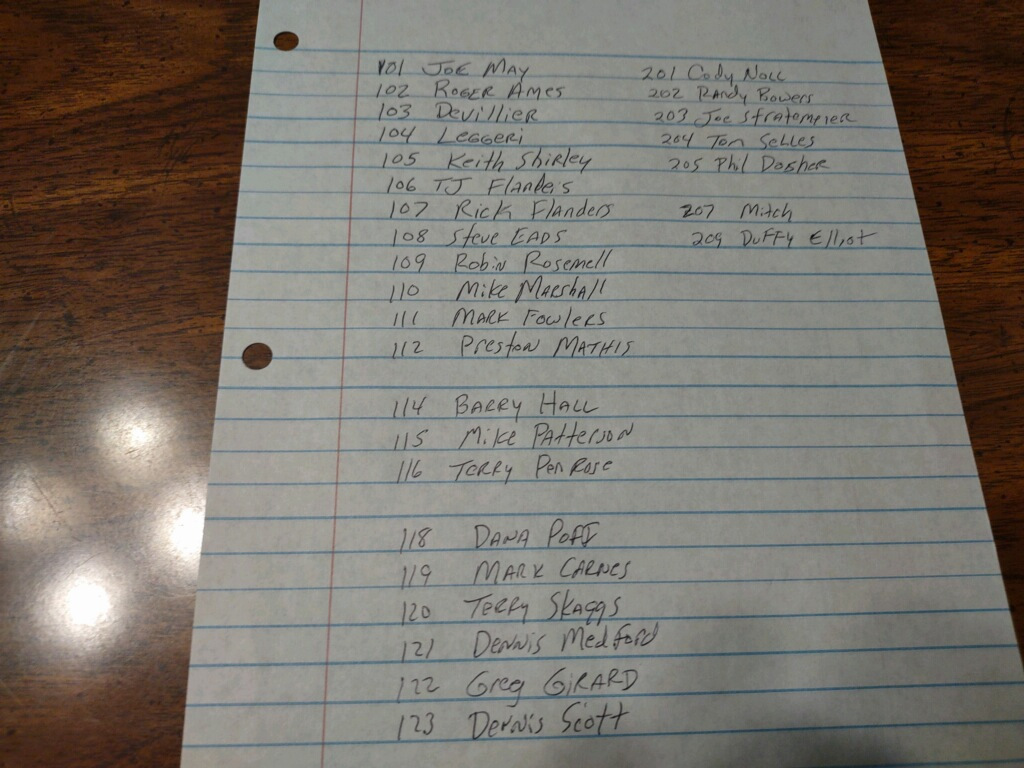 101 Joe May
102 Roger Ames
103 Devillier
104 Leggeri
105 Keith Shirley
106 TJ Flanders
107 Rick Flanders
108 Steve Eads
109 Robin Rosemell
110 Mike Marshall
111 Mark Fowlers
112 Preston Mathis
114 Barry Hall
115 Mike Patterson
116 Terry Penrose
118 Dana Poff
119 Mark Carnes
120 Terry Skaggs
121 Dennis Medford
122 Greg Girard
123 Dennis Scott
201 Cody Noll
202 Randy Bowers
203 Joe Stratemeier
204 Tom Selles
205 Phil Dosher
207 Mitch
209 Duffy Elliot